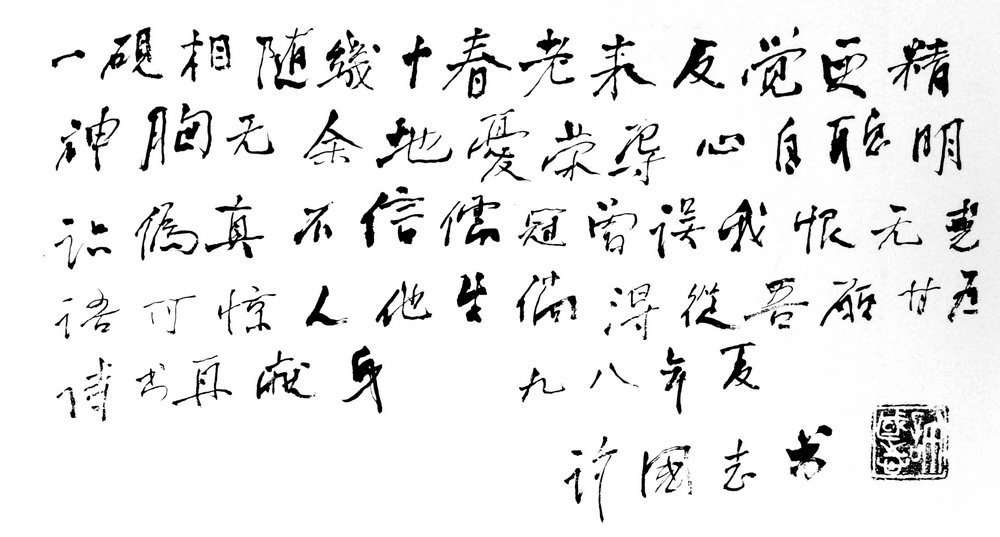 一砚相随幾十春老来反觉更精
神胸无余地憂荣辱心自聪明
识偽真不信儒冠曾误我恨无
语可惊人他生倘得從吾愿甘为
诗书再献身 九八年夏
许國志书